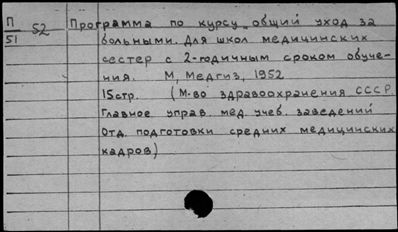 П 52 Программа по курсу „общий уход за
51 больными. Для школ медицинских
сестер с 2-годичным сроком обуче-
ния. М, Медгиз, 1952
15стр. (М-во здравоохранения СССР.
Главное управ. мед. учеб. заведений
Отд. подготовки средних медицинских
кадров)